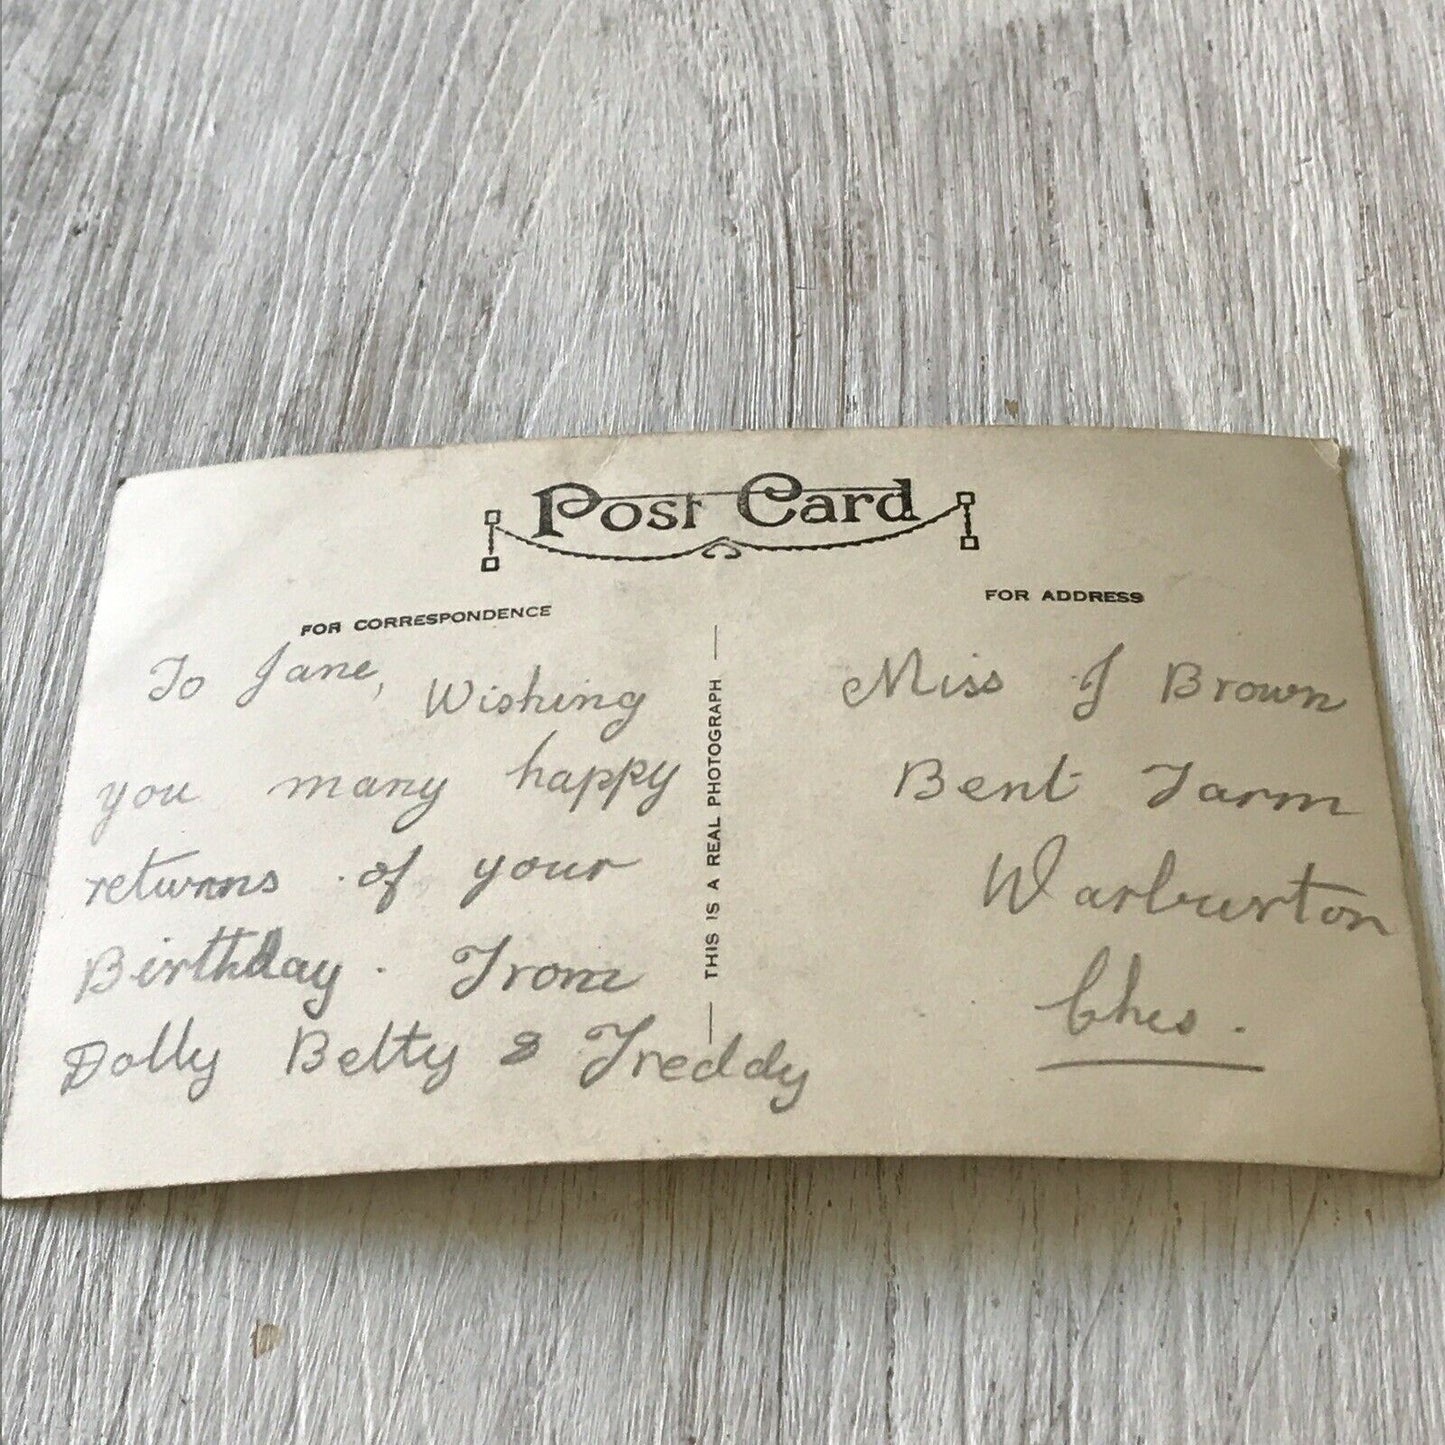 Post Card
FOR CORRESPONDENCE
To Jane, Wishing
you many happy
returns of your
Birthday. From
Dolly Betty & Freddy
THIS IS A REAL PHOTOGRAPH
FOR ADDRESS
Miss J Brown
Bent Farm
Warburton
Ches.